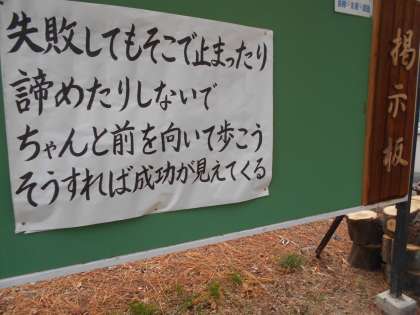 失敗してもそこで止まったり
諦めたりしないで
ちゃんと前を向いて歩こう
そうすれば成功が見えてくる
掲示板